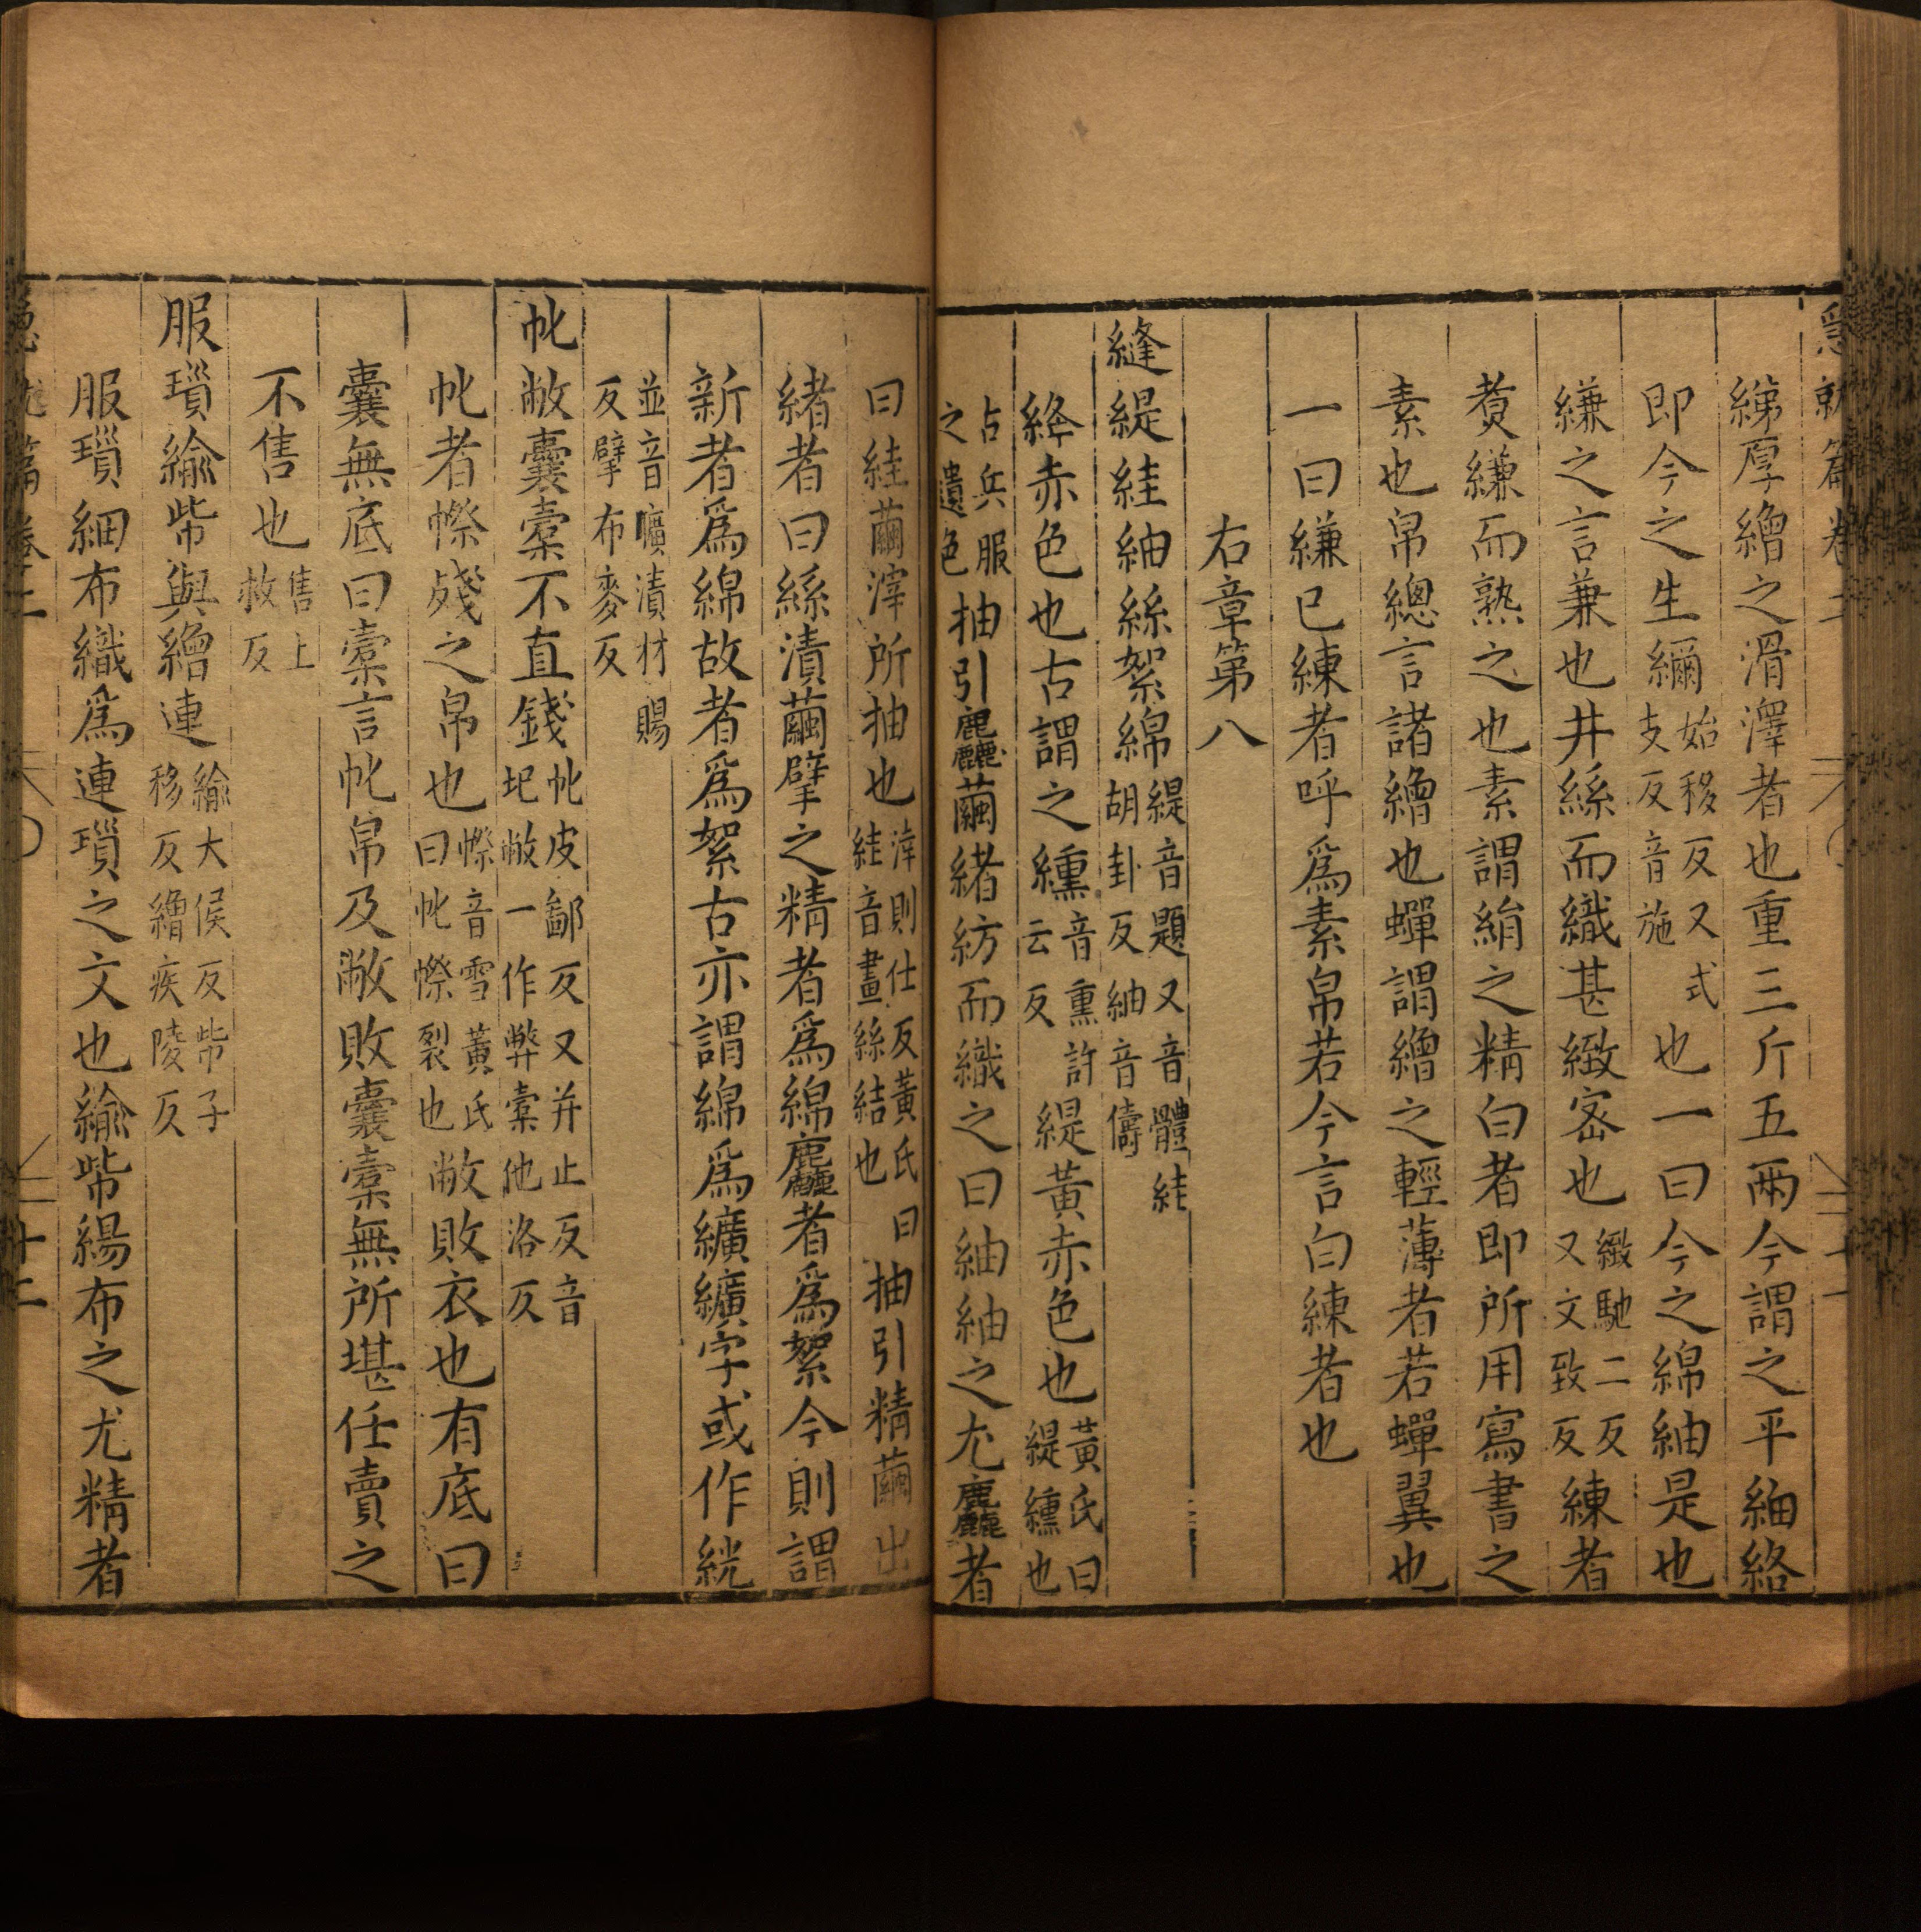 急就篇卷二
綈厚繒之滑澤者也重三斤五兩今謂之平紬絡
即今之生䌤始移反又式支反音施也一曰今之綿紬是也
縑之言兼也并絲而織甚緻密也緻馳二反又文致反練者
煑縑而熟之也素謂絹之精白者即所用寫書之
素也帛總言諸繒也蟬謂繒之輕薄者若蟬翼也
一曰縑已練者呼爲素帛若今言白練者也
右章第八
絳緹絓紬絲絮綿緹音題又音體絓胡卦反紬音儔
絳赤色也古謂之纁音熏許云反緹黃赤色也黃氏曰緹纁也
古兵服之遺色抽引麤繭緒紡而織之曰紬紬之尤麤者
曰絓繭滓所抽也滓則仕反黃氏曰絓音畫絲結也抽引精繭出
緒者曰絲漬繭擘之精者爲綿麤者爲絮今則謂
新者爲綿故者爲絮古亦謂綿爲纊纊字或作絖
並音曠漬材賜反擘布麥反
帗敝囊橐不直錢帗皮鄙反又并止反音圯敝一作弊橐他洛反
帗者幯殘之帛也幯音雪黃氏曰帗幯裂也敝敗衣也有底曰
囊無底曰橐言帗帛及敝敗囊橐無所堪任賣之
不售也售上救反
服瑣緰幋與繒連緰大侯反幋子移反繒疾陵反
服瑣細布織爲連瑣之文也緰幋緆布之尤精者
急就篇卷二
十二